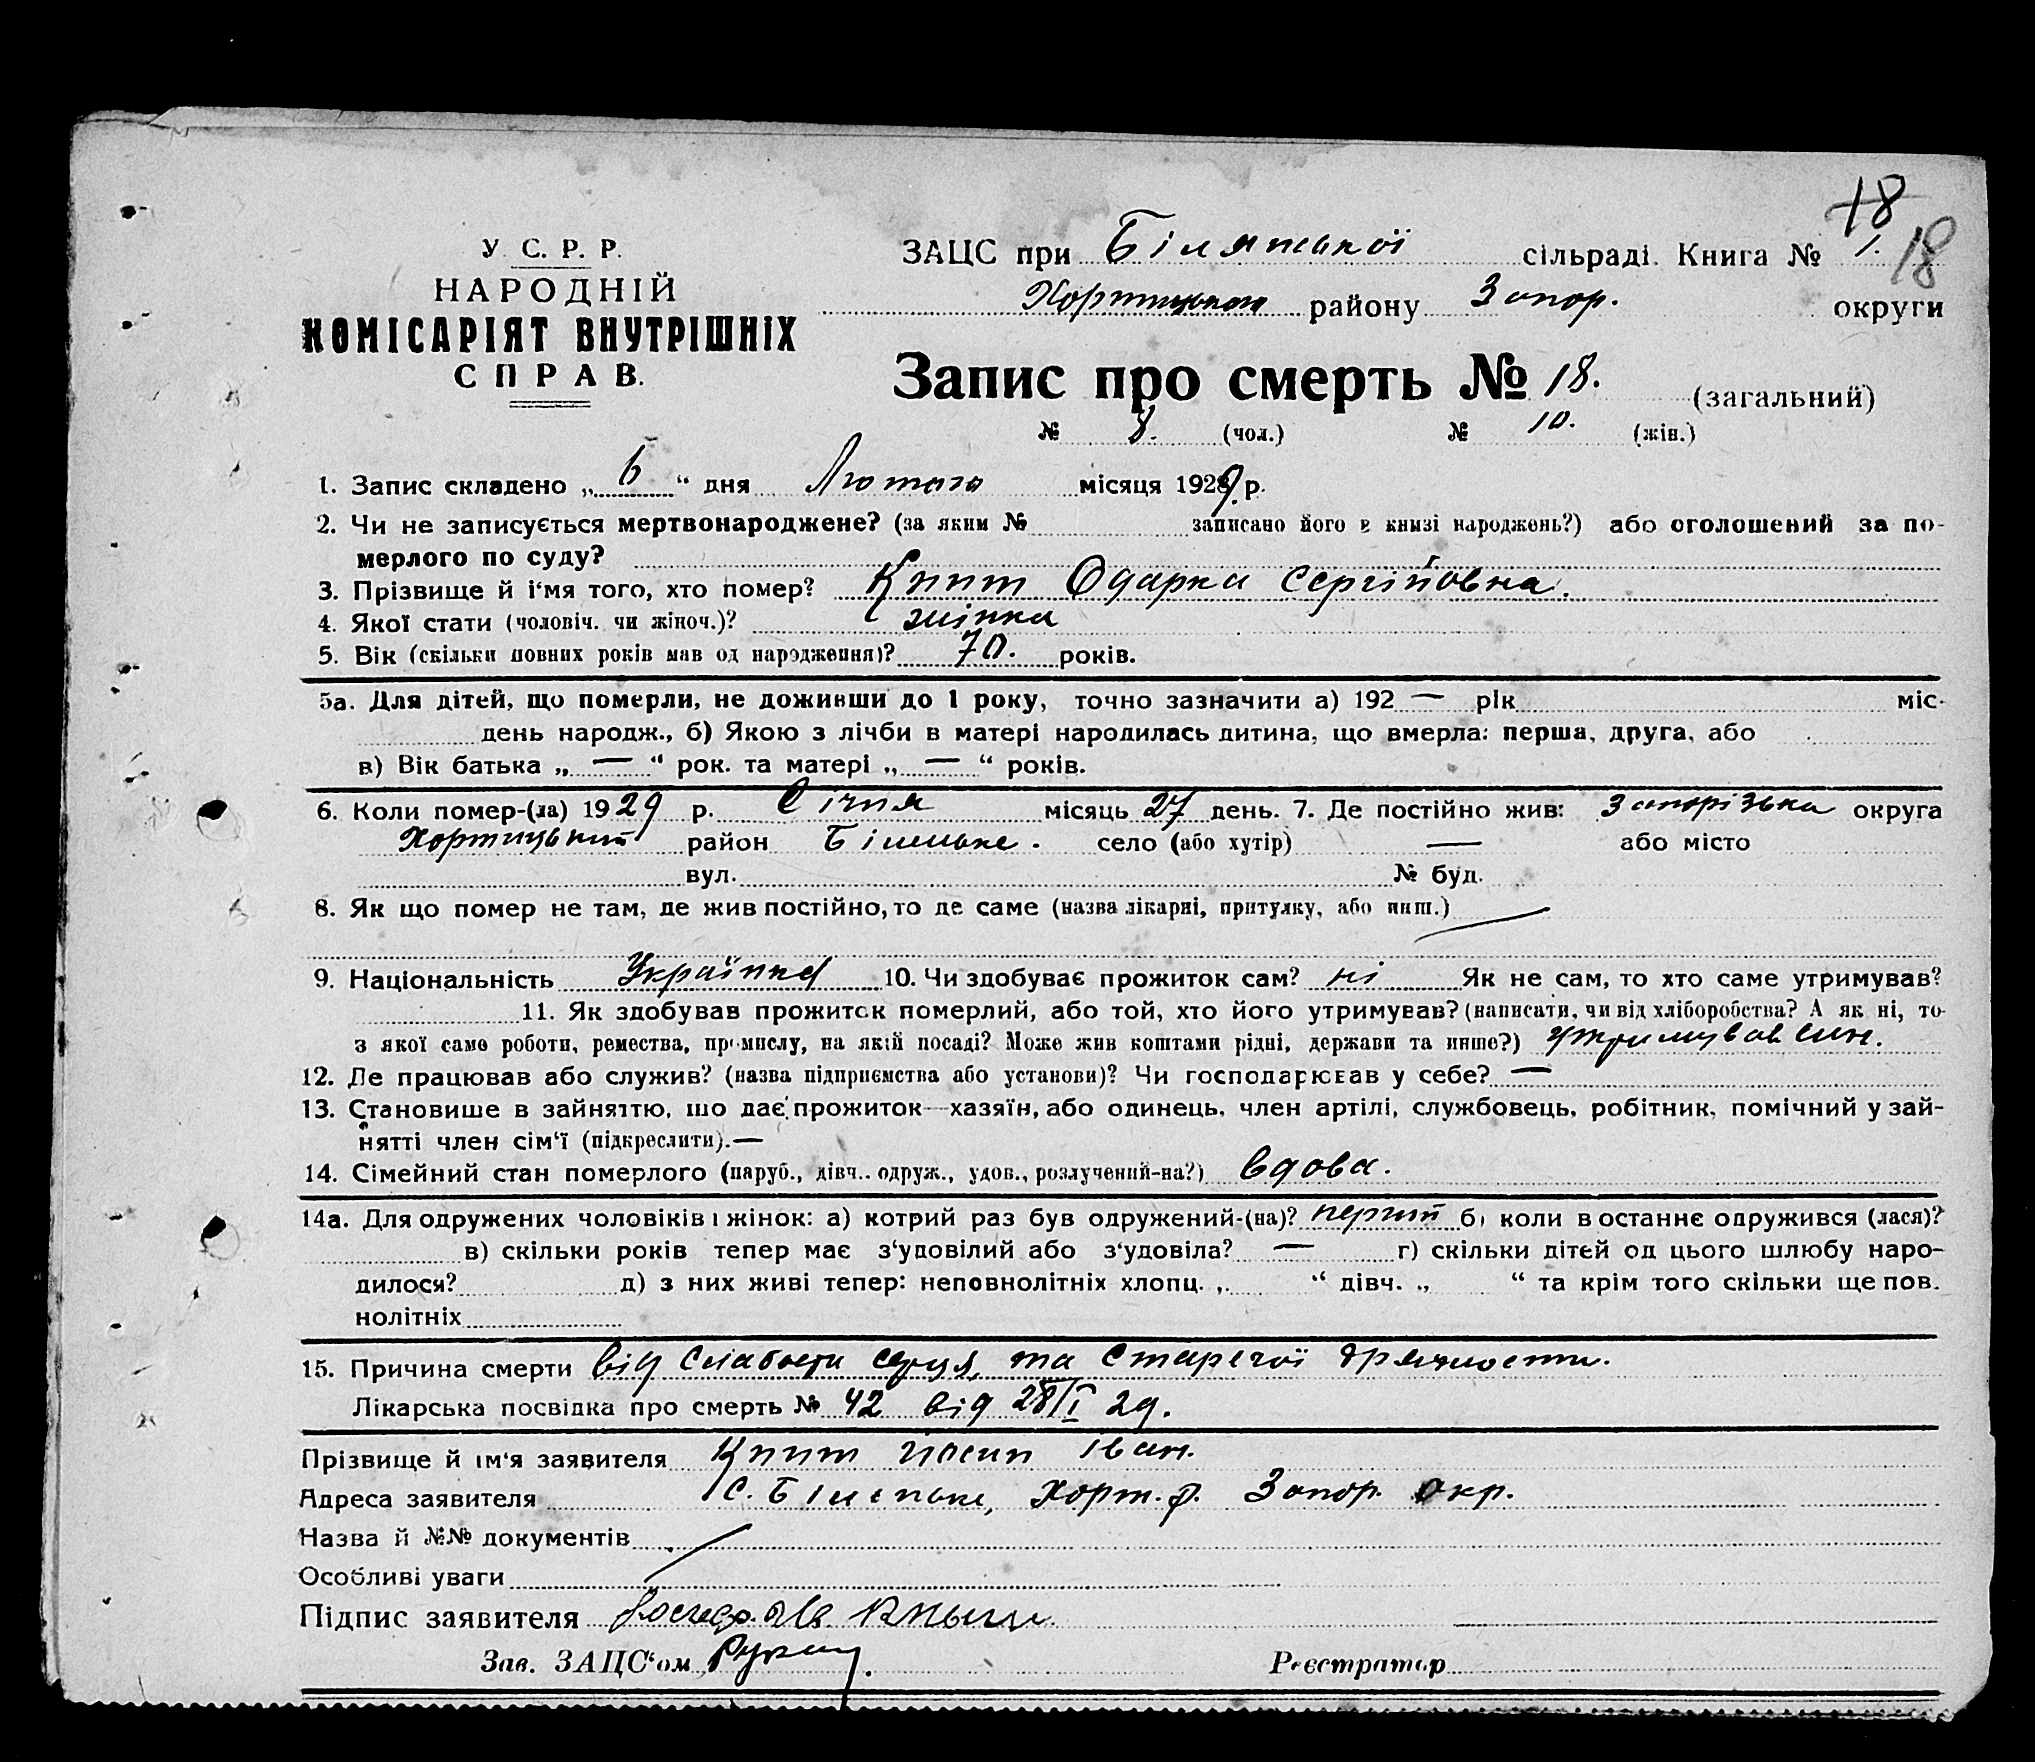 18
У. С. Р. Р.
НАРОДНІЙ
КОМІСАРІЯТ ВНУТРІШНІХ
СПРАВ.
ЗАЦС при сільраді. Книга № 1. 18
району Запор. округи
Запис про смерть № 18. (загальний)
№ 8. (чол.) № 10. (жін.)
1. Запис складено „ 6 “ дня Лютого місяця 1929 р.
2. Чи не записується мертвонароджене? (за яким № записано його в книзі народжень?) або оголошений за по-
мерлого по суду?
3. Прізвище й і‘мя того, хто помер? Книт Одарка Сергійовна.
4. Якої стати (чоловіч. чи жіноч.)? жінка
5. Вік (скільки повних років мав од народження)? 70. років.
5а. Для дітей, що померли, не доживши до 1 року, точно зазначити а) 192 — рік міс.
день народж., б) Якою з лічби в матері народилась дитина, що вмерла: перша, друга, або
в) Вік батька „ — “ рок. та матері „ — “ років.
6. Коли помер-(ла) 1929 р. Січня місяць 27 день. 7. Де постійно жив: Запорізька округа
Хортицький район село (або хутір) — або місто
вул. № буд.
8. Як що помер не там, де жив постійно, то де саме (назва лікарні, притулку, або инш.)
9. Національність Українка 10. Чи здобуває прожиток сам? ні Як не сам, то хто саме утримував?
11. Як здобував прожиток померлий, або той, хто його утримував? (написати, чи від хліборобства? А як ні, то
з якої само роботи, ремества, промислу, на якій посаді? Може жив коштами рідні, держави та инше?) утримував син.
12. Де працював або служив? (назва підприємства або установи)? Чи господарював у себе? —
13. Становище в зайняттю, що дає прожиток—хазяїн, або одинець, член артілі, службовець, робітник, помічний у зай-
нятті член сім‘ї (підкреслити).—
14. Сімейний стан померлого (паруб., дівч.. одруж., удов., розлучений-на?) вдова.
14а. Для одружених чоловіків і жінок: а) котрий раз був одружений-(на)? перший б) коли востаннє одружився (лася)?
в) скільки років тепер має з‘удовілий або з‘удовіла? — г) скільки дітей од цього шлюбу наро-
дилося? д) з них живі тепер: неповнолітніх хлопц. „ “ дівч. „ “ та крім того скільки ще пов.
нолітніх
15. Причина смерти від слабости серця, та старечої дряхлости.
Лікарська посвідка про смерть № 42 від 28/I 29.
Прізвище й ім‘я заявителя Книт Йосип Іван.
Адреса заявителя Хорт. р. Запор. окр.
Назва й №№ документів
Особливі уваги
Підпис заявителя
Зав. ЗАЦС‘ом Реєстратор